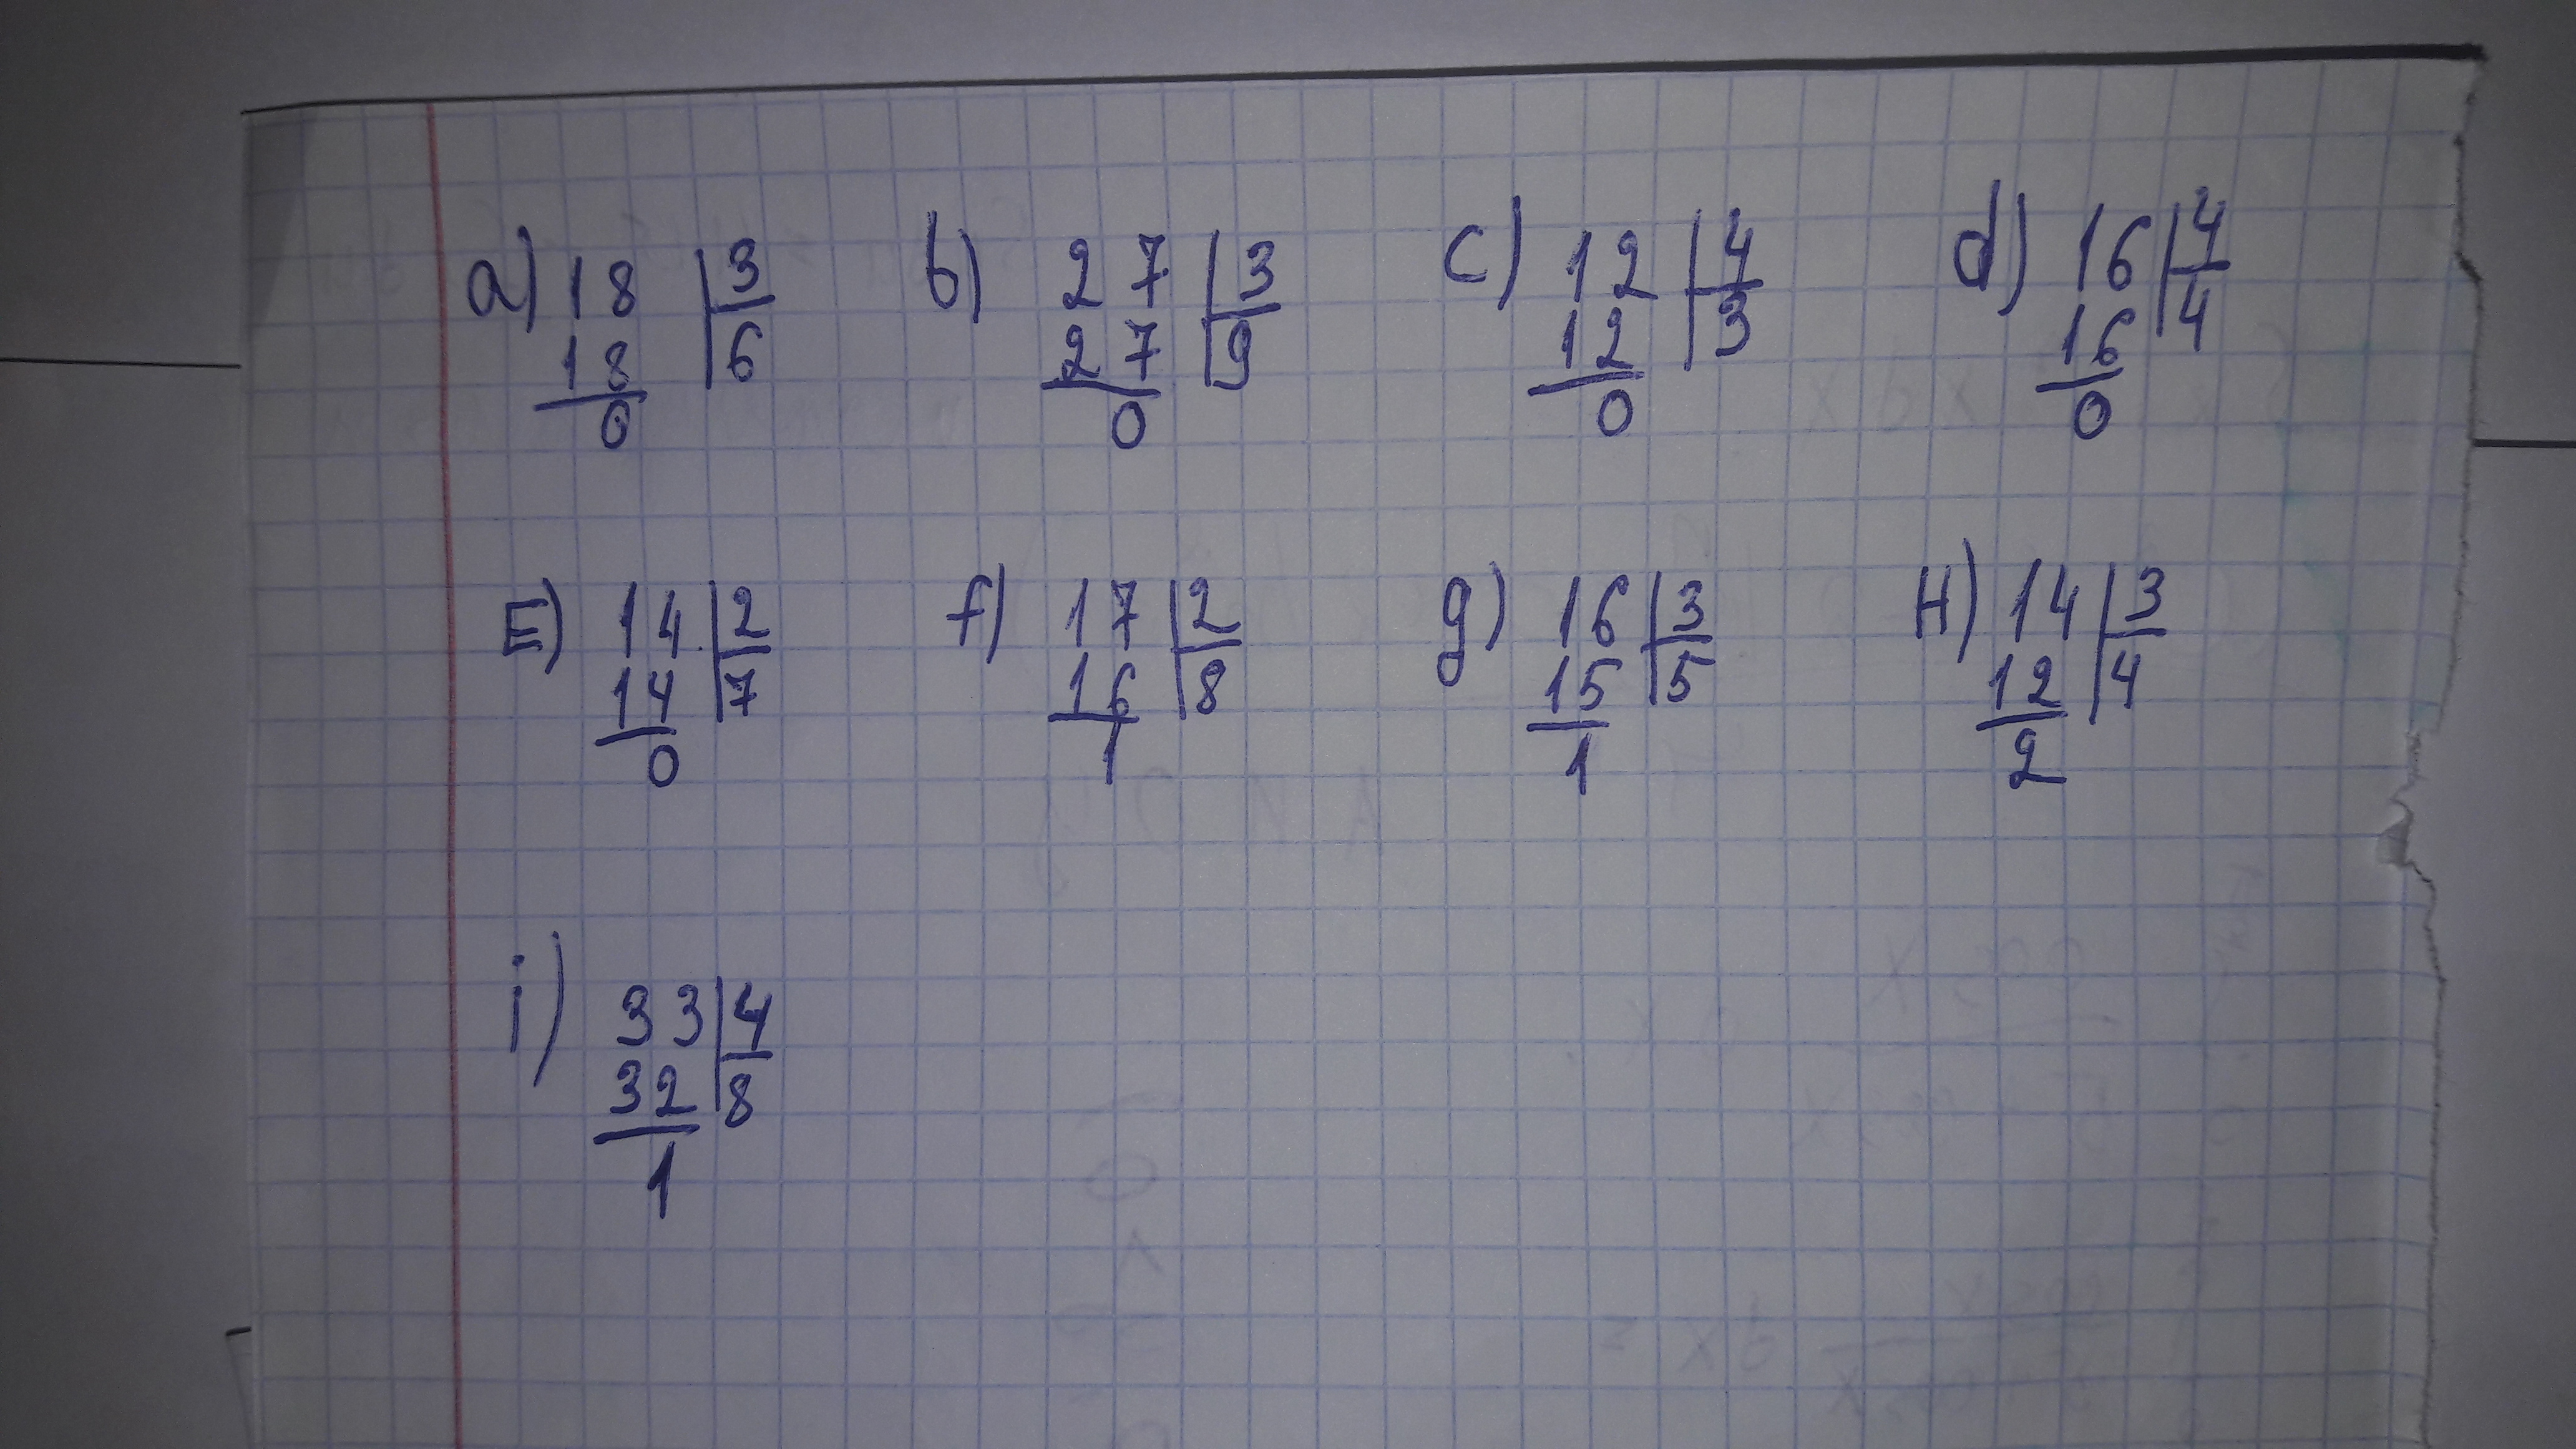 a) 18 | 3 b) 27 | 3 c) 12 | 4 d) 16 | 4
18 | 6 27 | 9 12 | 3 16 | 4
0 0 0 0
E) 14 | 2 f) 17 | 2 g) 16 | 3 H) 14 | 3
14 | 7 16 | 8 15 | 5 12 | 4
0 1 1 2
i) 33 | 4
32 | 8
1